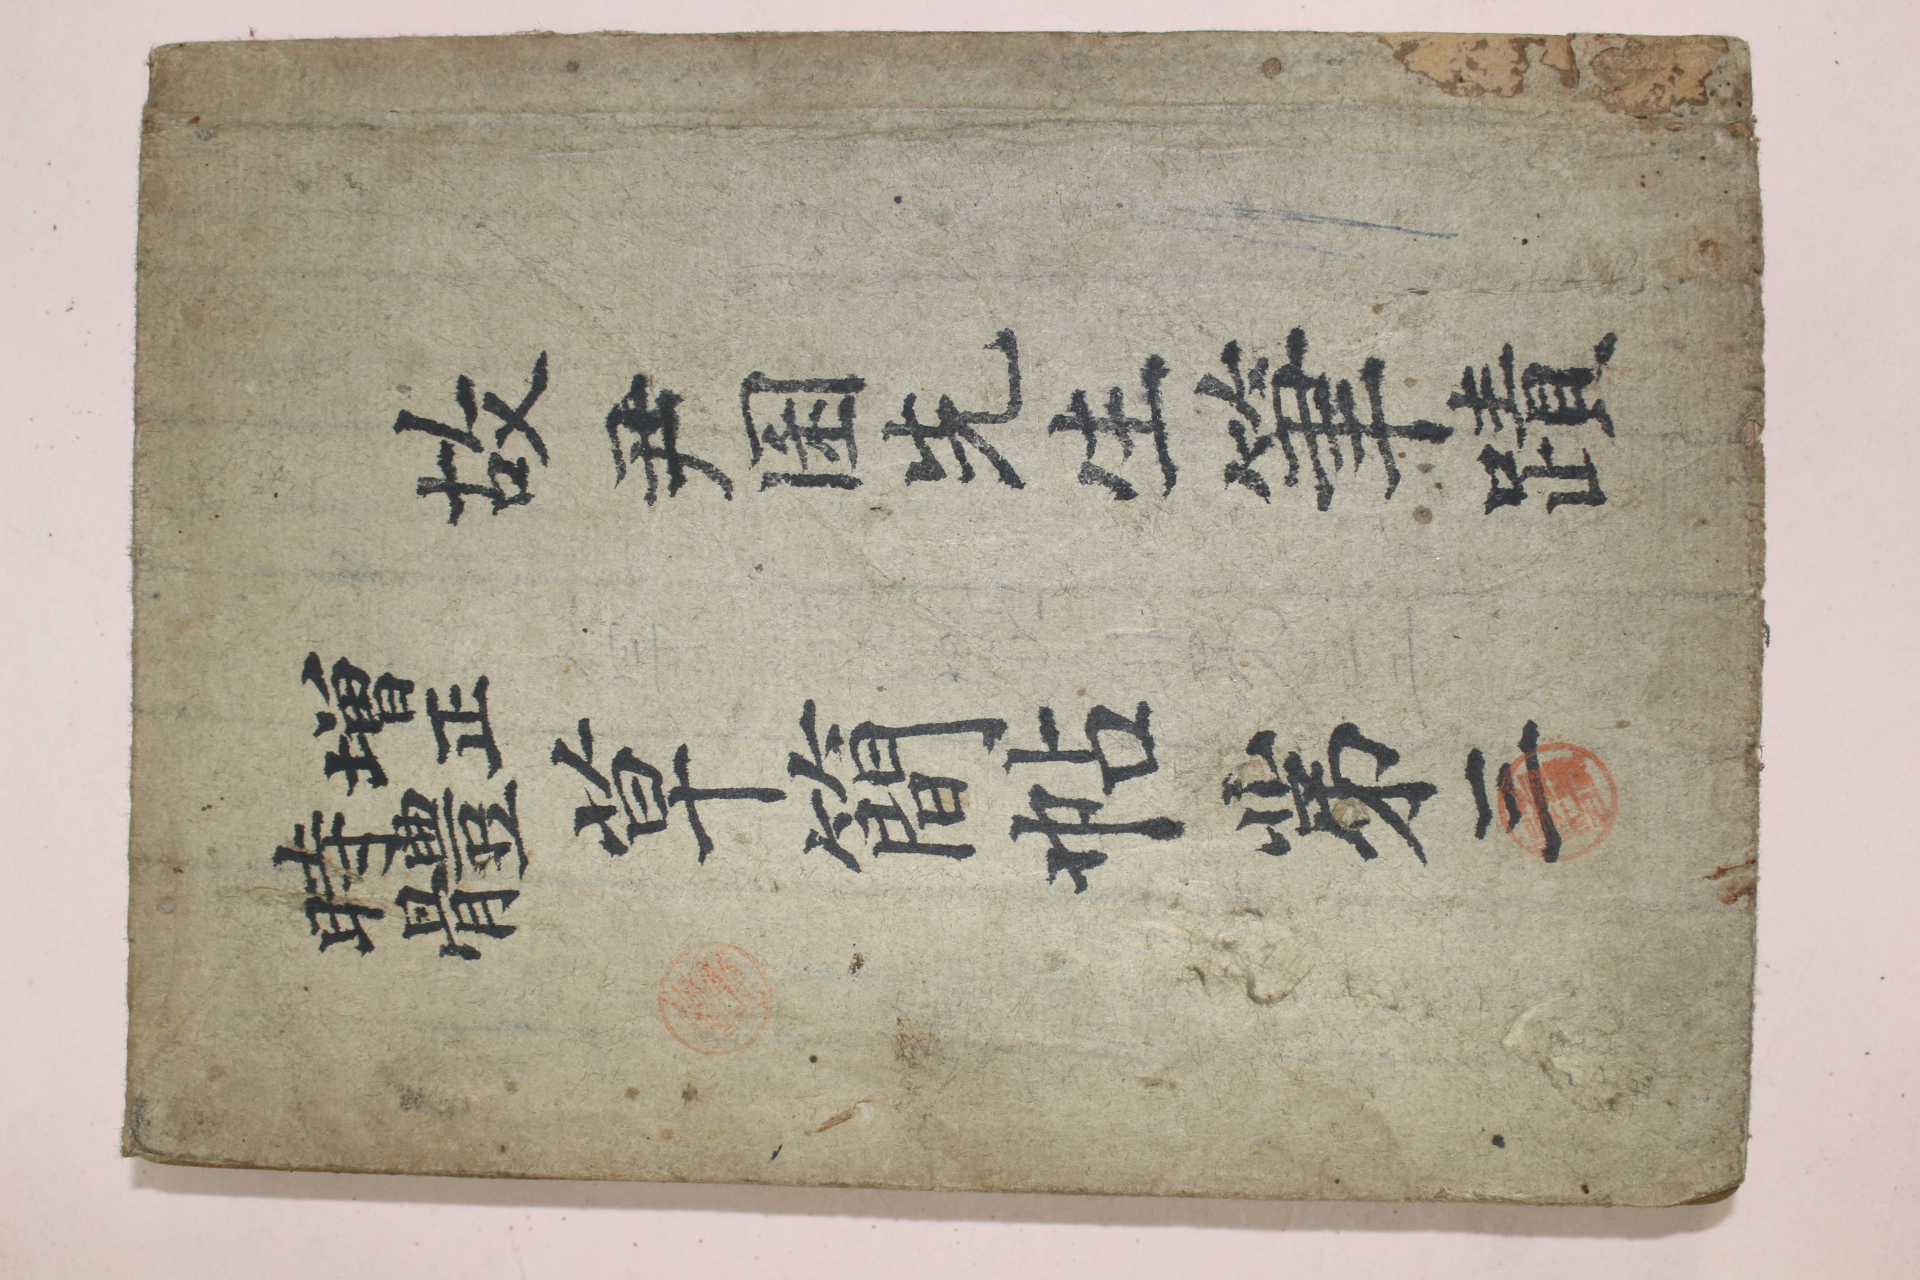 故尹先生筆蹟
增正
時體
草簡帖第二